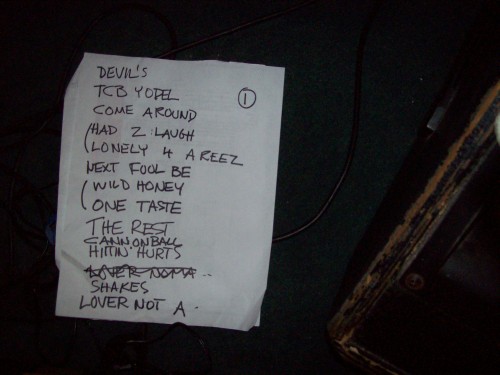 DEVIL'S
TCB YODEL
①
COME AROUND
(HAD 2 : LAUGH
(LONELY 4 A REEZ
NEXT FOOL BE
(WILD HONEY
(ONE TASTE
THE REST
CANNONBALL
HITTIN' HURTS
SHAKES
LOVER NOT A -